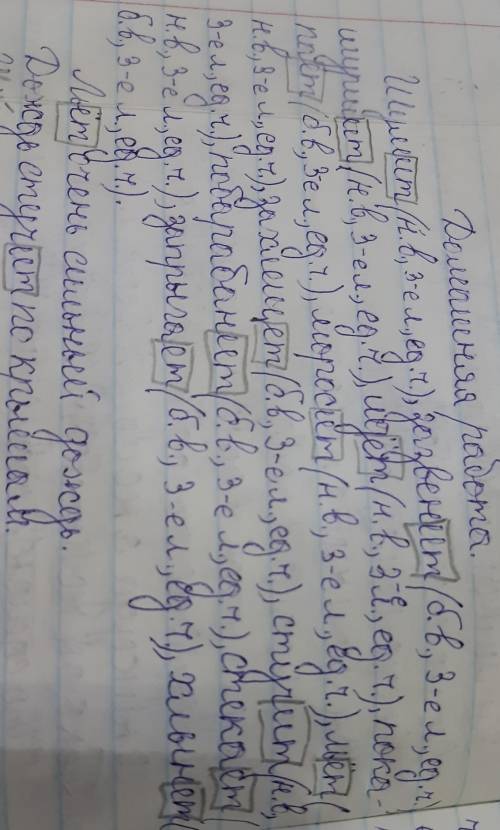 Домашняя работа.
Шумит (н.в, 3-е л, ед.ч.), зазвенит (б.в, 3-е л, ед.ч.),
шумит (н.в, 3-е л, ед.ч.), идёт (н.в, 3-е л, ед.ч.), пока-
пает (б.в, 3-е л, ед.ч.), моросит (н.в, 3-е л, ед.ч.), льёт (
н.в, 3-е л, ед.ч.), захлещет (б.в, 3-е л, ед.ч.), стучит (н.в,
3-е л, ед.ч.), побарабанит (б.в, 3-е л, ед.ч.), стекает (
н.в, 3-е л, ед.ч.), запрыгает (б.в, 3-е л, ед.ч), хлынет (
б.в, 3-е л, ед.ч.).
Льёт очень сильный дождь.
Дождь стучит по крышам.